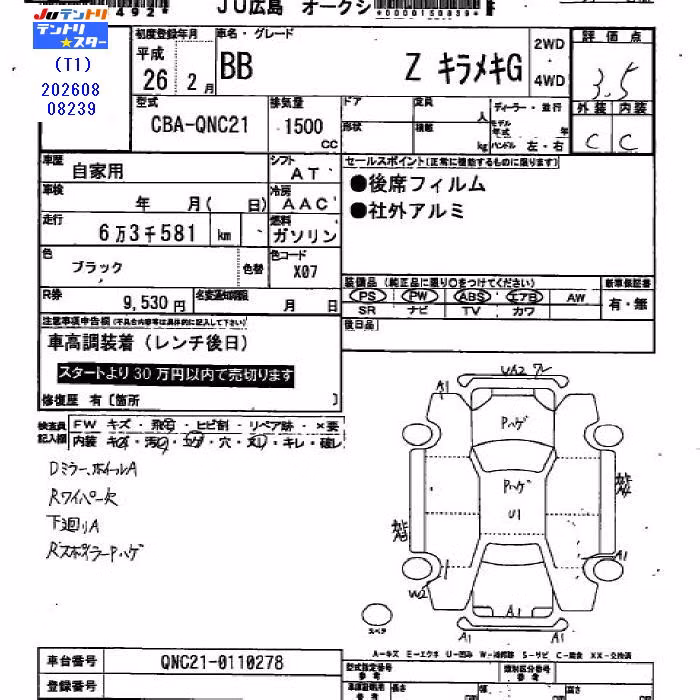 JU広島 オークシ
*0000150839*
JUテントリ
テントリ★スター
(T1)
202608
08239
初度登録年月
平成
26 2月
車名・グレード
BB Z キラメキG
2WD
・
4WD
評価点
3.5
外装 内装
C C
型式
CBA-QNC21
排気量
1500
CC
ドア 定員 人
形状 積載 kg
ディーラー・並行
モデル年式 年
ハンドル 左・右
車歴
自家用
シフト
AT
車検
年 月( 日)
冷房
AAC
走行
6万3千581 km
燃料
ガソリン
色
ブラック
色替
色コード
X07
R券
9,530円
名変通知期限
月 日
セールスポイント(正常に機能するものに限ります)
●後席フィルム
●社外アルミ
装備品(純正品に限り○をつけてください)
PS PW ABS エアB AW
SR ナビ TV カワ
新車保証書
有・無
後日品
注意事項申告欄(不具合内容等は具体的に記入して下さい)
車高調装着(レンチ後日)
スタートより30万円以内で売切ります
修復歴 有[箇所 ]
検査員
記入欄
FW キズ・飛石・ヒビ割・リペア跡・×要
内装 キズ・汚れ・コゲ・穴・スレ・キレ・破レ
Dミラー、ホイールA
Rワイパー欠
下廻りA
RスポイラーPハゲ
UA2 ワレ
A1
Pハゲ
Pハゲ
U1
A1
W2
A1
A1 A1
スペア
A-キズ E-エクボ U-凹み W-補修跡 S-サビ C-腐食 XX-交換済
車台番号
QNC21-0110278
登録番号
型式指定番号
参考
類別区分番号
参考
長さ
幅
高さ